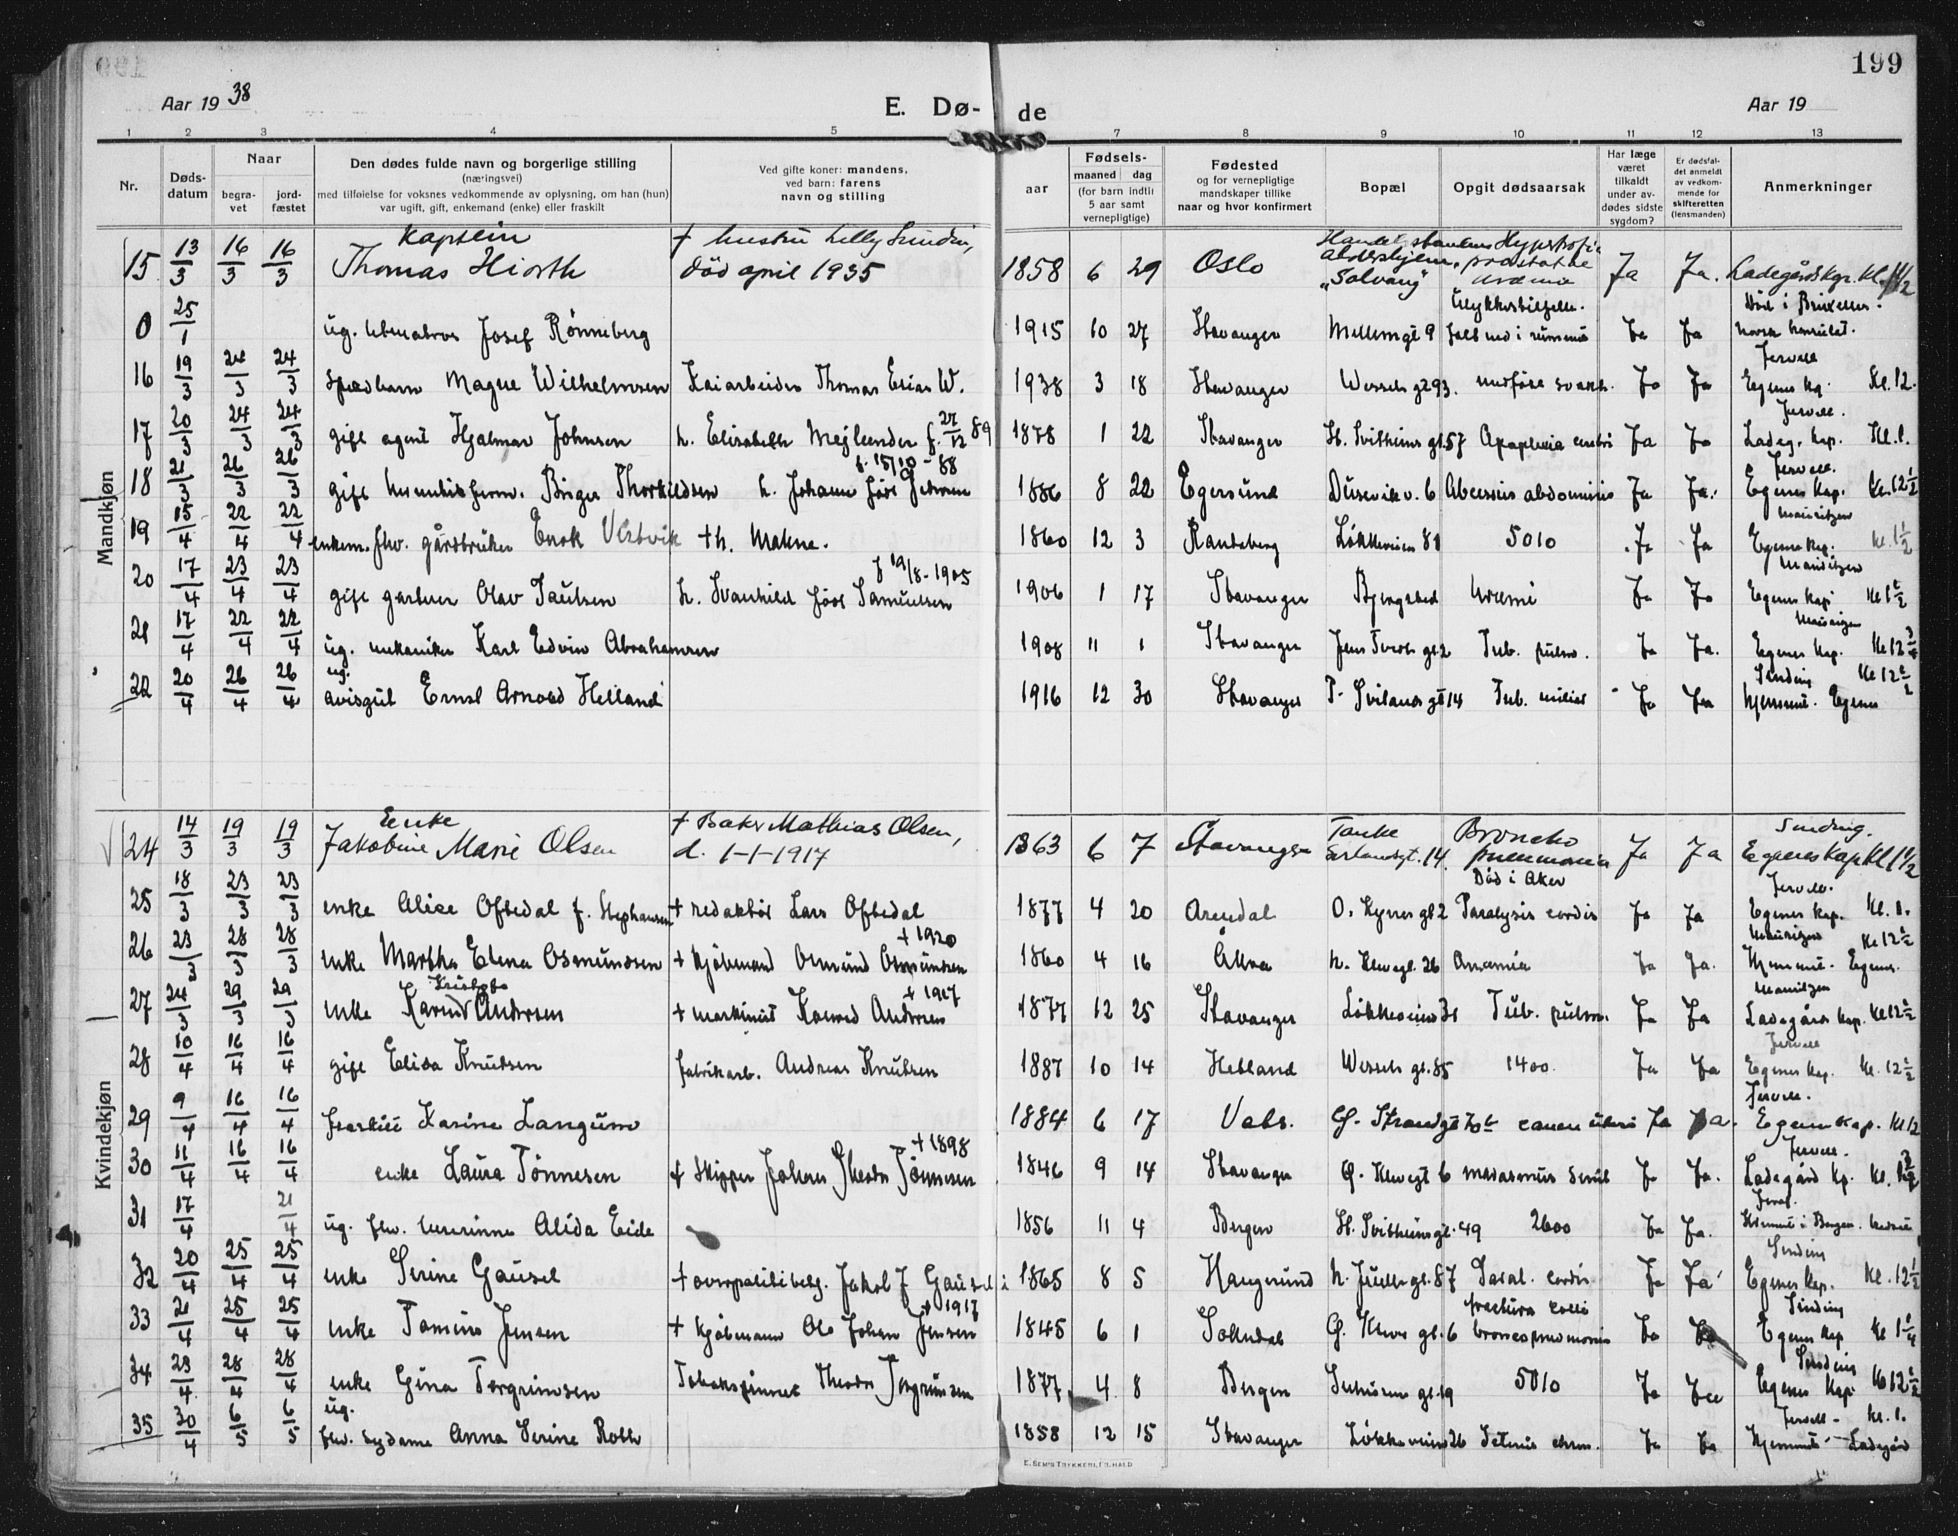 199
Aar 19 38
E. Dø- de
Aar 19
1 2 3 4 5 7 8 9 10 11 12 13
Nr.
Døds-datum
Naar
begra-vet
jord-fæstet
Den dødes fulde navn og borgerlige stilling
(næringsvei)
med tilføielse for voksnes vedkommende av oplysning, om han (hun)
var ugift, gift, enkemand (enke) eller fraskilt
Ved gifte koner: mandens,
ved barn: farens
navn og stilling
Fødsels-
aar
maaned dag
(for barn indtil
5 aar samt
vernepligtige)
Fødested
og for vernepligtige
mandskaper tillike
naar og hvor konfirmert
Bopæl
Opgit dødsaarsak
Har læge
været
tilkaldt
under av-
dødes sidste
sygdom?
Er dødsfal-
det anmeldt
av vedkom-
mende for
skifteretten
(lensmanden)
Anmerkninger
Mandkjøn
15 13/3 16/3 16/3 Kaptein Thomas Hiorth + hustru Lelly Sundin, død april 1935 1858 6 29 Oslo Handelsstandens Aldershjem, "Solvang" Hypertrofia prostatae uræmia Ja Ja. Ladegårdskp. Kl.
0 25/1 ug. Josef Rønneberg 1915 10 27 Stavanger 9 Ja Ja Død i Brüxelles. norsk konsulat.
16 19/3 24/3 24/3 Spædbarn Magne Wilhelmsen Kaiarbeider Thomas Elias W. 1938 3 18 Stavanger Wessels gt 93. medføse svakh. Ja Ja Jervell Egenes kp. Kl. 12.
17 20/3 24/3 24/3 gift agent Hjalmar Johnsen h. Elisabeth Mejlænder f. 27/12 89 1878 1 22 Stavanger St. Svithuns gt. 57 Apoplexia cerebri Ja Ja Jervell. Ladeg. kap. Kl. 1.
18 21/3 26/3 26/3 gift Birger Thorkildsen h. Johanne født f. 15/10-88 1886 8 22 Egersund Dusevikv. 6 Abcessus abdominis Ja Ja. Jervell. Egenes kap. Kl. 12 1/2
19 15/4 22/4 22/4 enkem. fhv. gårdbruker Enok Vestvik + h. Malene. 1860 12 3 Randaberg Løkkeveien 81 5010 Ja Ja Mauritzen Egenes kap. Kl. 1 1/2
20 17/4 23/4 23/4 gift gartner Olav Paulsen h. Svanhild født Samuelsen f 19/8-1905 1906 1 17 Stavanger Bjergsted Uræmi Ja Ja Mauritzen Egenes kap. Kl 1 1/2
21 17/4 22/4 22/4 ug. mekaniker Karl Edvin Abrahamsen 1908 11 1 Stavanger Jens gt 2 Tub. pulm. Ja Ja. Mauritzen Egenes kap. Kl 12 3/4
22 20/4 26/4 26/4 ug. avisgut Ernst Arnold Helland 1916 12 30 Stavanger P. gt 14 Tub. miliar Ja Ja Sinding Kl 12 1/2 hjemmet. Egenes
Kvindekjøn
24 14/3 19/3 19/3 Enke Jakobine Marie Olsen + Baker Mathias Olsen, d. 1-1-1917 1863 6 7 Stavanger Tanke Svilandsgt. 14. Broncho pneumonia Ja Ja Sinding. Egenes Kap Kl 1 1/2
25 18/3 23/3 23/3 enke Alice Oftedal f. Stephansen + redaktør Lars Oftedal 1877 4 20 Arendal O. Kyrres gt 2 Død i Aker Paralysis cordis Ja Ja Jervell. Egenes kap. Kl. 1.
26 23/3 28/3 28/3 enke Martha Elena Osmundsen + kjøbmand Osmund Osmundsen + 1920 1860 4 16 Åkra n. Klevegt. 26 Anæmia Ja Ja. Mauritzen Kl 12 1/2 Hjemmet. Egenes.
27 24/3 29/3 29/3 enke Karen Andersen + maskinist Konrad Andersen + 1917 1877 12 25 Stavanger Løkkeveien 31 Tub. pulm. Ja Ja Mauritzen Ladegård kap. Kl 12 1/2
28 10/4 16/4 16/4 gift Elida Knutsen fabrikarb. Andreas Knutsen 1887 10 14 Hebland Wessels gt. 85 1400. Ja Ja Jervell Egenes kap. Kl. 12 1/2
29 9/4 16/4 16/4 fraskilt Karine Langum 1884 6 17 Vats. Ø. Strandgt cancer uteri Ja Ja. Jervell. Egenes Kap. Kl 12
30 11/4 16/4 16/4 enke Laura Tønnesen + Skipper Johan Theodor Tønnesen + 1898 1846 9 14 Stavanger Ø. Klevegt 6 marasmus senil Ja Ja. Jervell. Ladegård kp. Kl.
31 17/4 21/4 ug. fhv. lærerinne Alida Eide 1856 11 4 Bergen St. Svithunsgt. 49 2600 Ja Ja.
32 20/4 25/4 25/4 enke Serine Gausel + overpolitibetj. Jakob J Gausel 1865 8 5 Haugesund n. gt. 87 Paral. cordis Ja Ja Sinding Egenes kap. Kl. 12 1/2
33 21/4 25/4 25/4 enke Tomine Jensen + kjøbmann Ole Johan Jensen + 1917 1845 6 1 Sokndal Ø. Kleve gt. 6 fractura colli broncopneumonia Ja Ja Sinding Egenes kap Kl 1 1/4
34 23/4 28/4 28/4 enke Gina Torgrimsen Tobakspinner Theodor Torgrimsen 1877 4 8 Bergen gt. 19 5010 Ja Ja Sinding Egenes kap. Kl 12 1/2
35 30/4 6/5 6/5 ug. fhv. sydame Anna Serine Roth 1858 12 15 Stavanger Løkkeveien 26 chron. Ja Ja Jervell - kl. 1. Hjemmet - Ladegård
E. SEM'S TRYKKERI, FR.HALD